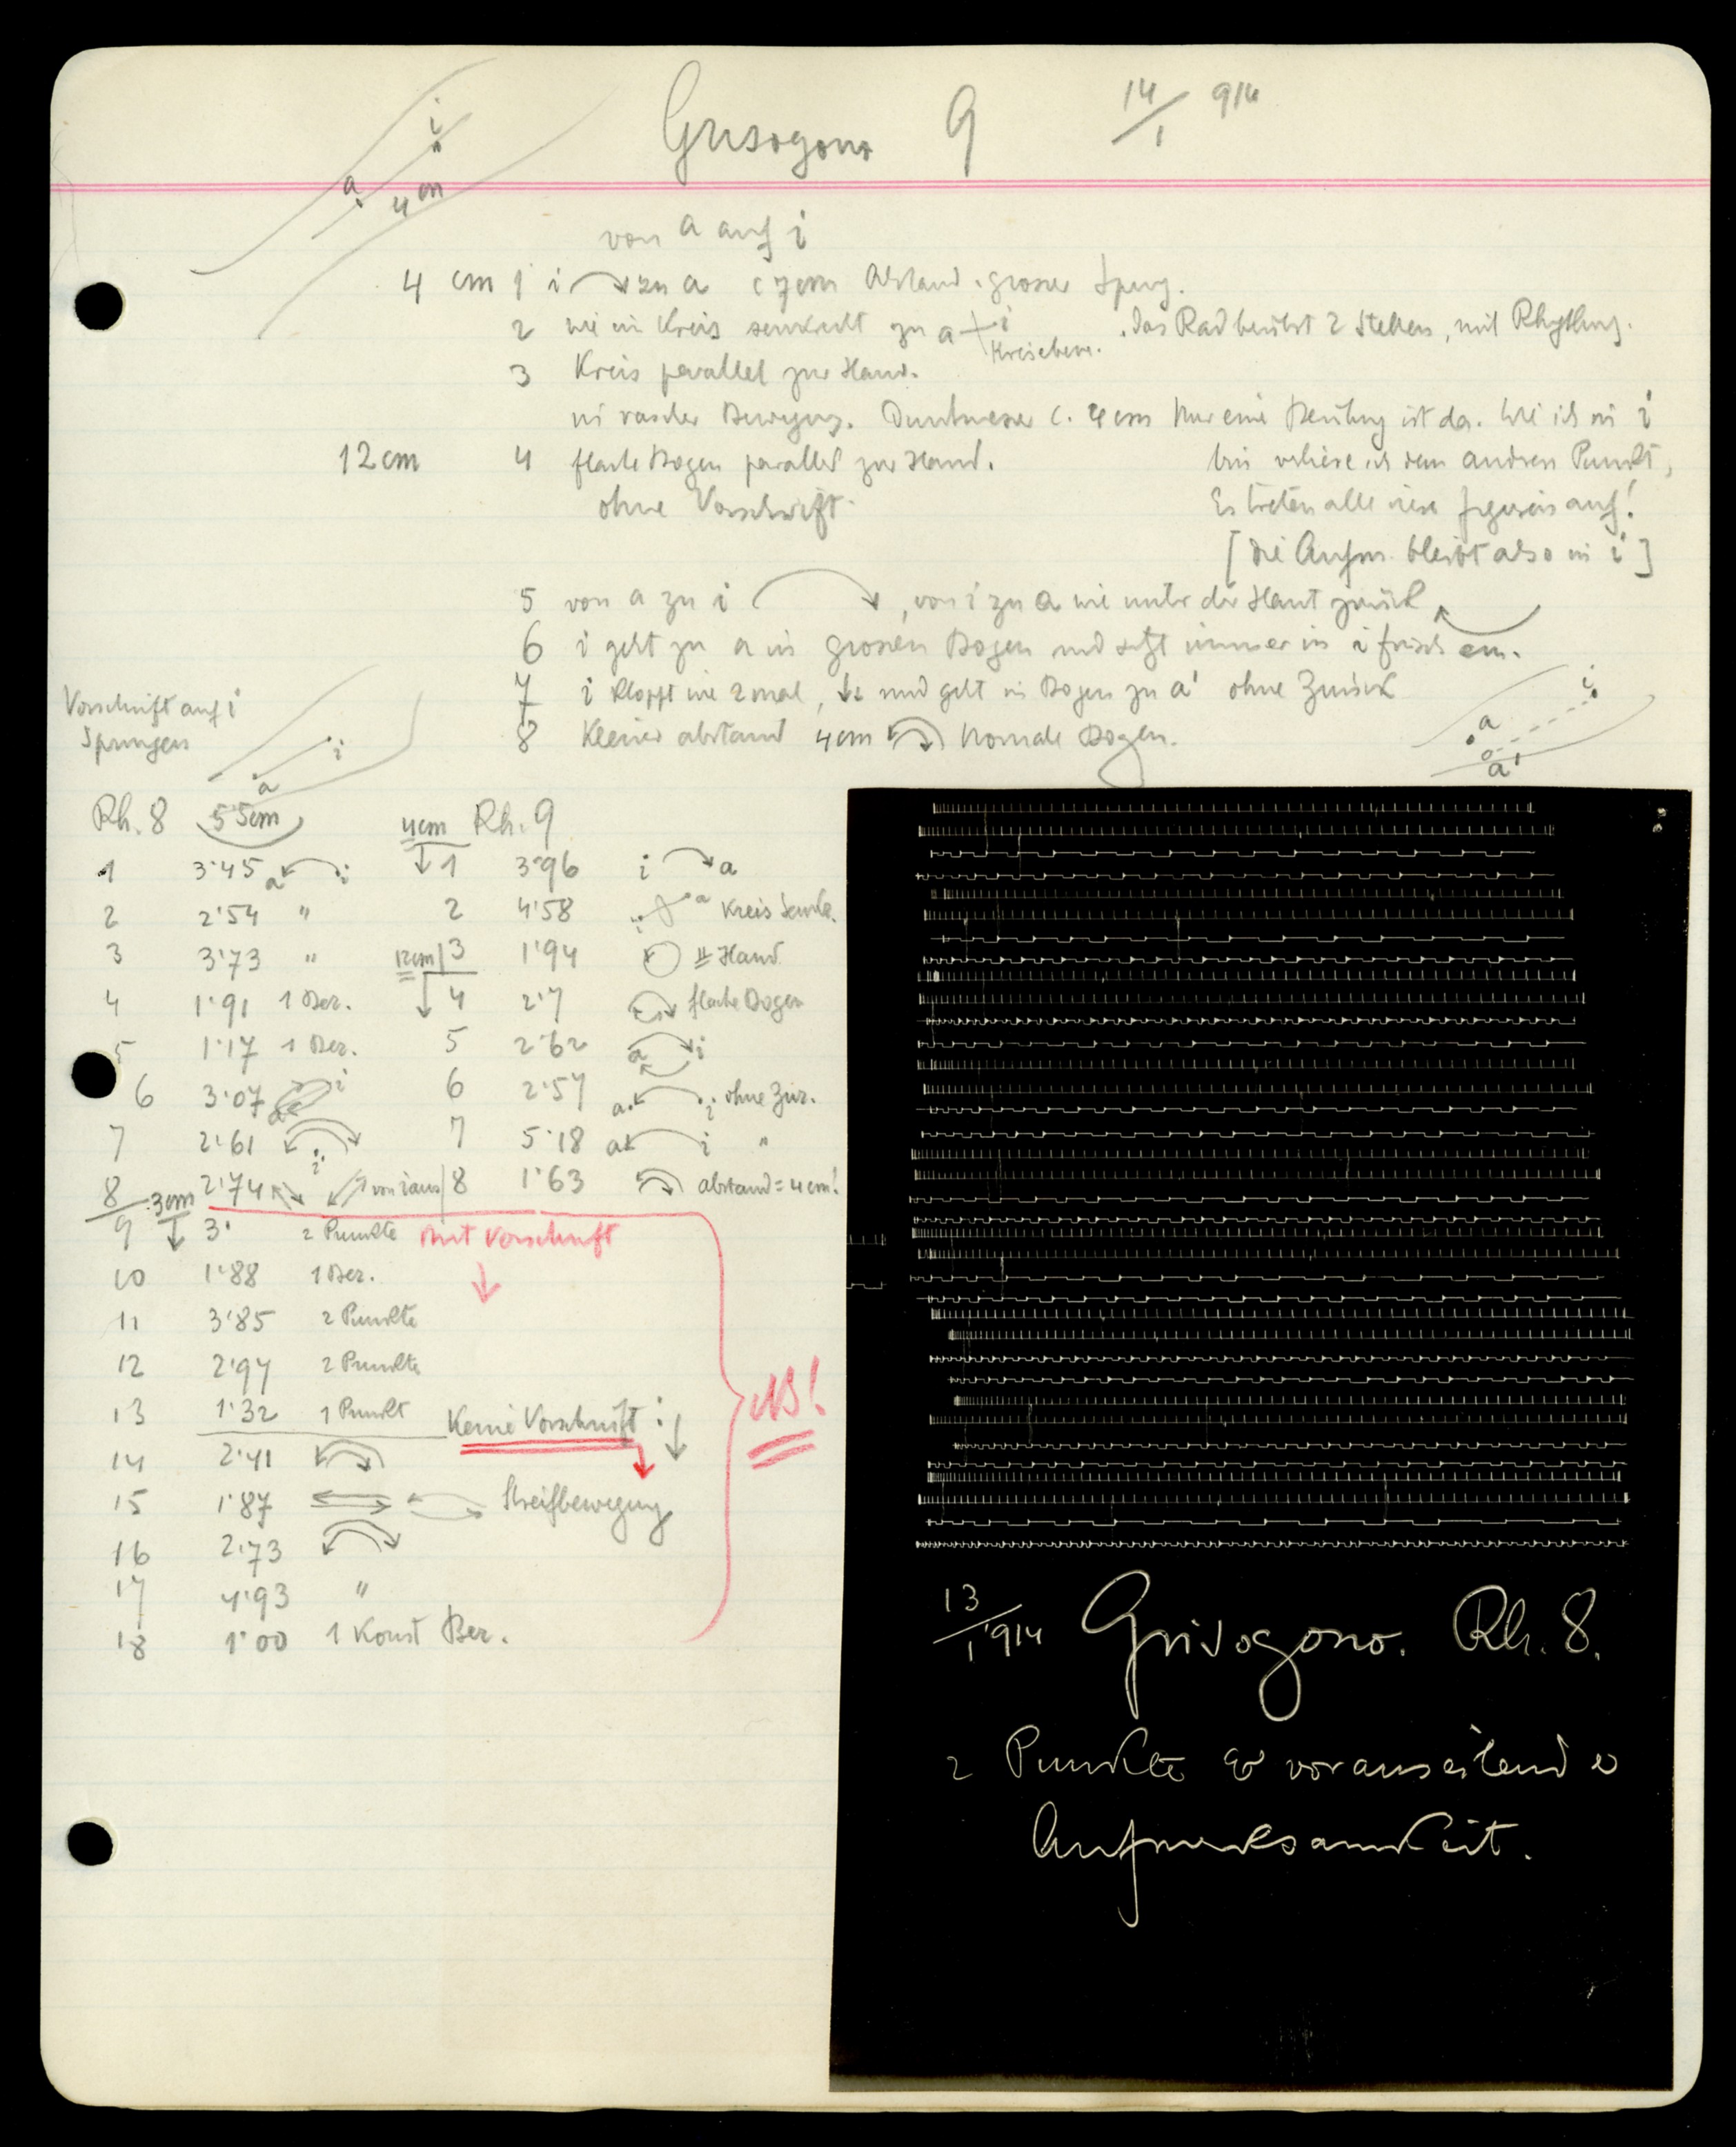 Grisogono 9 14/1 914
i
a
4 cm
von a auf i
4 cm 1 i zu a c 7cm Abstand. grosser Sprung.
2 wie im Kreis senkrecht zu a i Kreisebene. Das Rad berührt 2 Stellen, mit Rhythmg.
3 Kreis parallel zur Hand.
in rascher Bewegung. Durchmesser c. 4 cm Nur eine Berührung ist da. Wie ich in i
12 cm 4 flache Bogen parallel zur Hand. bin verliere ich den andren Punkt,
ohne Vorschrift. Es treten alle diese Figuren auf!
[Die Aufm. bleibt also in i]
5 von a zu i , von i zu a wie unter der Haut zurück
6 i geht zu a in grossen Bogen und setzt immer in i frisch ein.
7 i klopft wie 2 mal, und geht in Bogen zu a' ohne Zurück
8 Kleiner abstand 4cm normale Bogen.
i
a
a'
Vorschrift auf i
Springen
i
a
Rh. 8 5·5cm 4cm Rh. 9
1 3·45 a i 1 3·96 i a
2 2·54 " 2 4·58 i a Kreis Senkr.
3 3·73 " 12cm 3 1·94 = Hand
4 1·91 1 Ber. 4 2·7 flache Bogen
5 1·17 1 Ber. 5 2·62 a i
6 3·07 a i 6 2·57 a i ohne Zur.
7 2·61 i 7 5·18 a i "
8 2·74 von i aus 8 1·63 abstand = 4cm!
9 3cm 3· 2 Punkte mit Vorschrift
10 1·88 1 Ber.
11 3·85 2 Punkte
12 2·97 2 Punkte
13 1·32 1 Punkt Keine Vorschrift :
NB!
14 2·41
15 1·87 Streifbewegung
16 2·73
17 4·93 "
18 1·00 1 Konst Ber.
13/1 914 Grisogono. Rh. 8.
2 Punkte vorauseilend
Aufmerksamkeit.